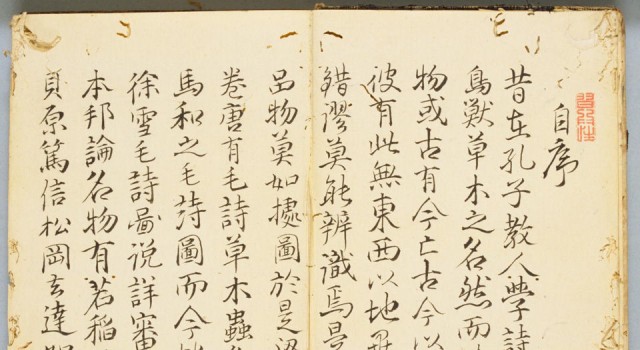 自序
昔在孔子教人學詩
鳥獸草木之名然而
物或古有今亡古今以
彼有此無東西以地
錯謬莫能辨識焉是
品物莫如據圖於是
卷唐有毛詩草木蟲
馬和之毛詩圖而今
徐雪毛詩啚说詳審
本邦論名物有若稻
貝原篤信松岡玄達